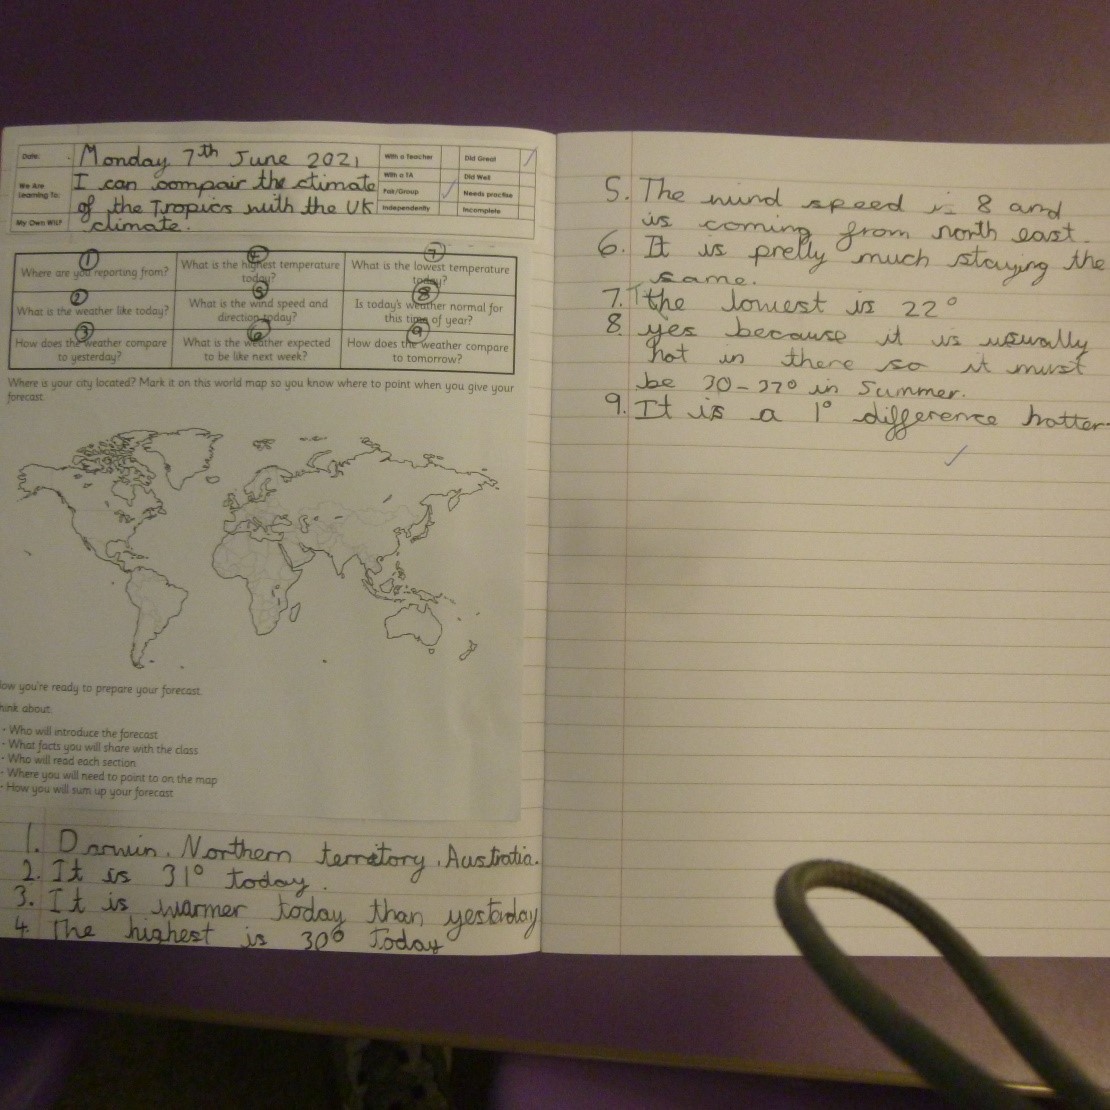 Date:
Monday 7th June 2021
With a Teacher
Did Great
We Are
Learning To:
I can compair the climate
With a TA
Did Well
of the Tropics with the UK
Pair/Group
Needs practise
My Own WILF
climate.
Independently
Incomplete
1
4
7
Where are you reporting from?
What is the highest temperature
today?
What is the lowest temperature
today?
2
5
8
What is the weather like today?
What is the wind speed and
direction today?
Is today's weather normal for
this time of year?
3
6
9
How does the weather compare
to yesterday?
What is the weather expected
to be like next week?
How does the weather compare
to tomorrow?
Where is your city located? Mark it on this world map so you know where to point when you give your
forecast.
ow you're ready to prepare your forecast.
hink about:
- Who will introduce the forecast
- What facts you will share with the class
- Who will read each section
- Where you will need to point to on the map
- How you will sum up your forecast
1. Darwin, Northern territory, Australia.
2. It is 31° today.
3. It is warmer today than yesterday
4. The highest is 30° today
5. The wind speed is 8 and
is coming from north east.
6. It is pretty much staying the
same.
7. the lowest is 22°
8. yes because it is usually
hot in there so it must
be 30-32° in Summer.
9. It is a 1° difference hotter.